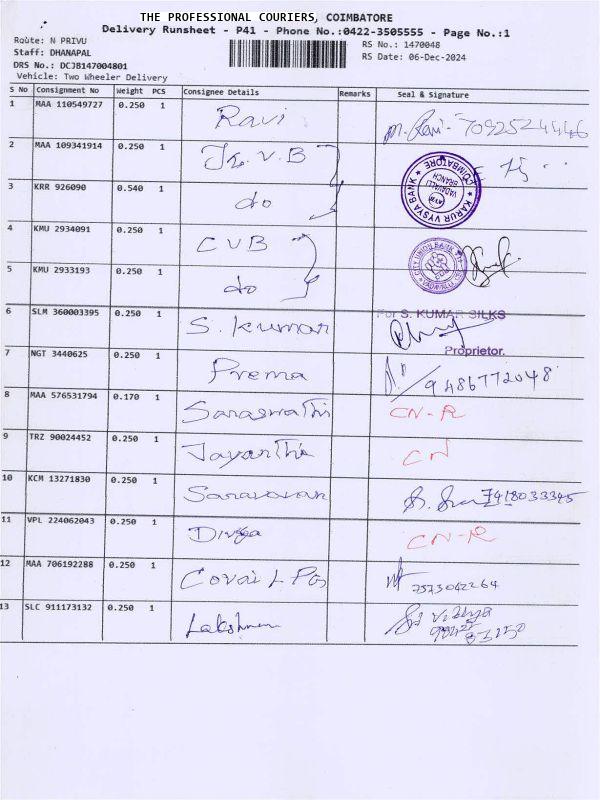 THE PROFESSIONAL COURIERS, COIMBATORE
Delivery Runsheet - P41 - Phone No.:0422-3505555 - Page No.:1
Route: N PRIVU
Staff: DHANAPAL
DRS No.: DCJB147004801
Vehicle: Two Wheeler Delivery
RS No.: 1470048
RS Date: 06-Dec-2024
S No Consignment No Weight PCS Consignee Details Remarks Seal & Signature
1 MAA 110549727 0.250 1 Ravi
2 MAA 109341914 0.250 1 K.V.B
KARUR VYSYA BANK COIMBATORE VADAVALLI BRANCH
3 KRR 926090 0.540 1 do
4 KMU 2934091 0.250 1 CUB
CITY UNION BANK
5 KMU 2933193 0.250 1 do
6 SLM 360003395 0.250 1 S. Kumar For S. KUMAR SILKS
Proprietor.
7 NGT 3440625 0.250 1 Prema 9486772048
8 MAA 576531794 0.170 1 Saraswathi CN-R
9 TRZ 90024452 0.250 1 Jayanthi CN
10 KCM 13271830 0.250 1 Saravanan
11 VPL 224062043 0.250 1 Divya CN-R
12 MAA 706192288 0.250 1 Covai 7373042264
13 SLC 911173132 0.250 1 Lakshman